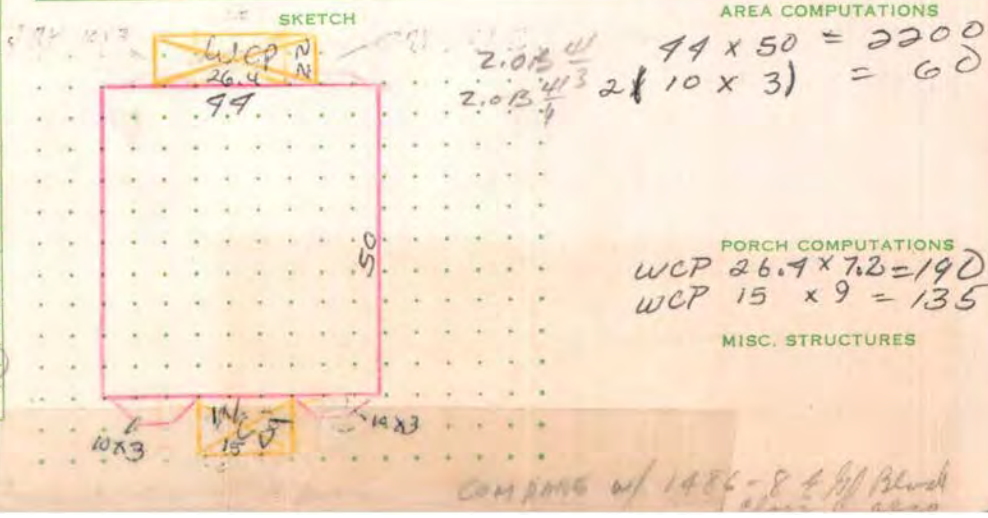 SKETCH
WCP
26.4
7.2
44
50
10x3
15
9
10x3
2.0B 4/3
2.0B 4/4
AREA COMPUTATIONS
44 x 50 = 2200
2( 10 x 3) = 60
PORCH COMPUTATIONS
WCP 26.4 x 7.2 = 190
WCP 15 x 9 = 135
MISC. STRUCTURES
COMPARE w/ 1486 - 8